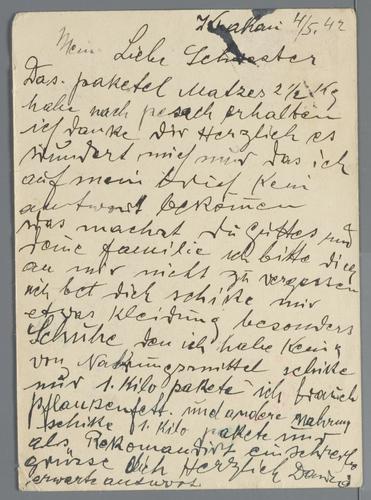 Krakau 4/5. 42
Mein Liebe Schwester
Das. paketel Matzes 2 1/2 Kg
habe nach pesach erhalten
ich danke Dir Herzlich es
wundert mich nur das ich
auf mein brief kein
antwort bekomen
was machst du gutes und
deine familie ich bitte dich
an mir nicht zu vergessen
ich bet dich schike mir
etwas kleidung besonders
Schuhe den ich habe keine
von Nahrungsmittel schike
nur 1. Kilo pakete ich brauch
pflanzenfett. und andere Nahrung
schike 1. Kilo pakete nur
als Rekomandirt einschreib
grüsse dich Herzlich David
erwarte antwort